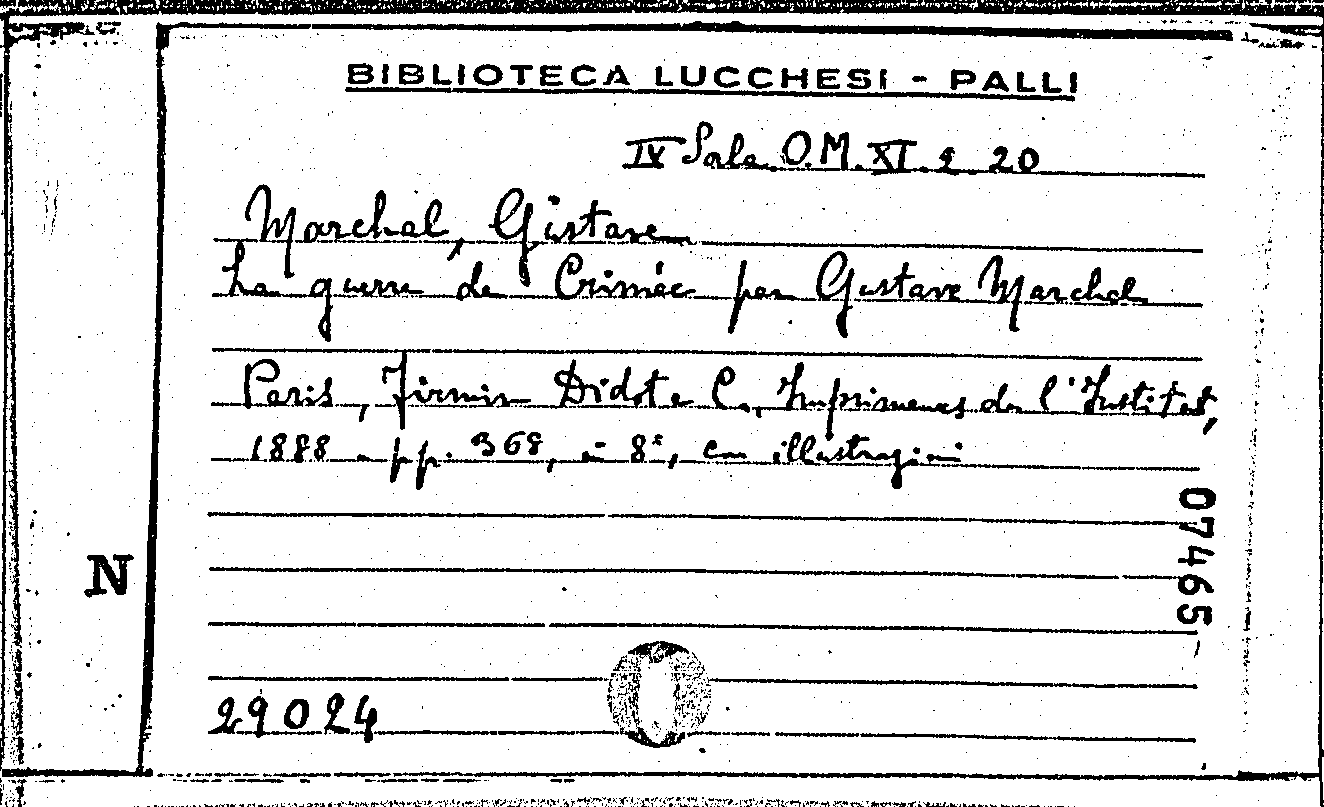 BIBLIOTECA LUCCHESI - PALLI
IV Sala O.M. XI. 2. 20
Marchal, Gustave
La guerre de Crimée par Gustave Marchal
Paris, Firmin Didot e C., Imprimeurs de l'Institut,
1888 - pp. 368, in 8°, con illustrazioni
07465
N
29024